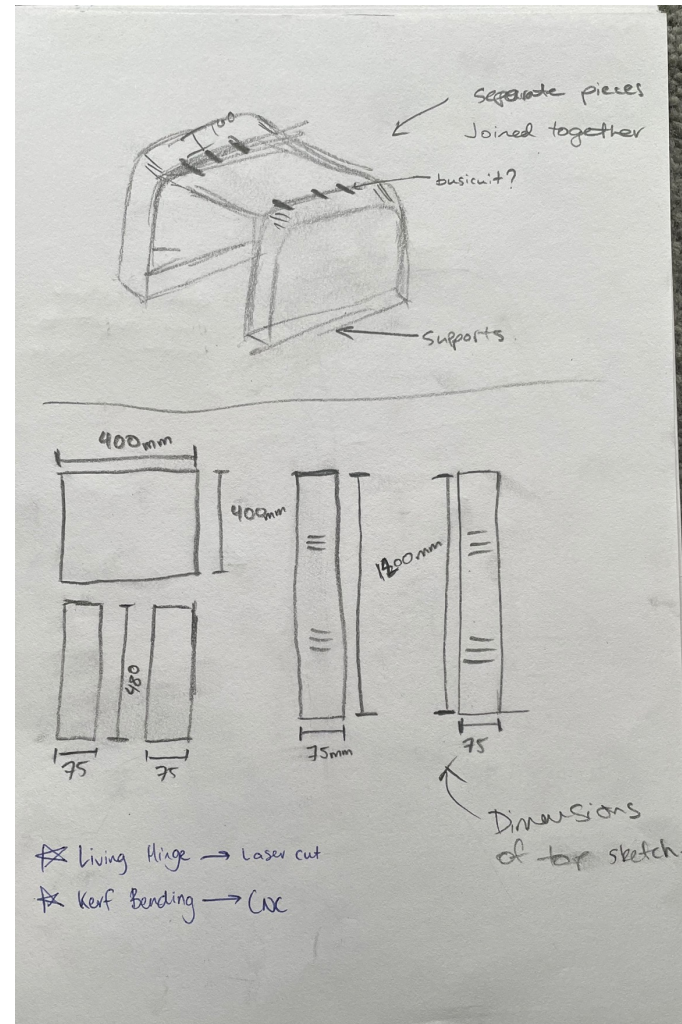 separate pieces
Joined together
100
busicuit?
Supports.
400mm
400mm
1200mm
480
75
75
75mm
75
Dimensions
of top sketch.
☆ Living Hinge → Laser cut
☆ Kerf Bending → CNC